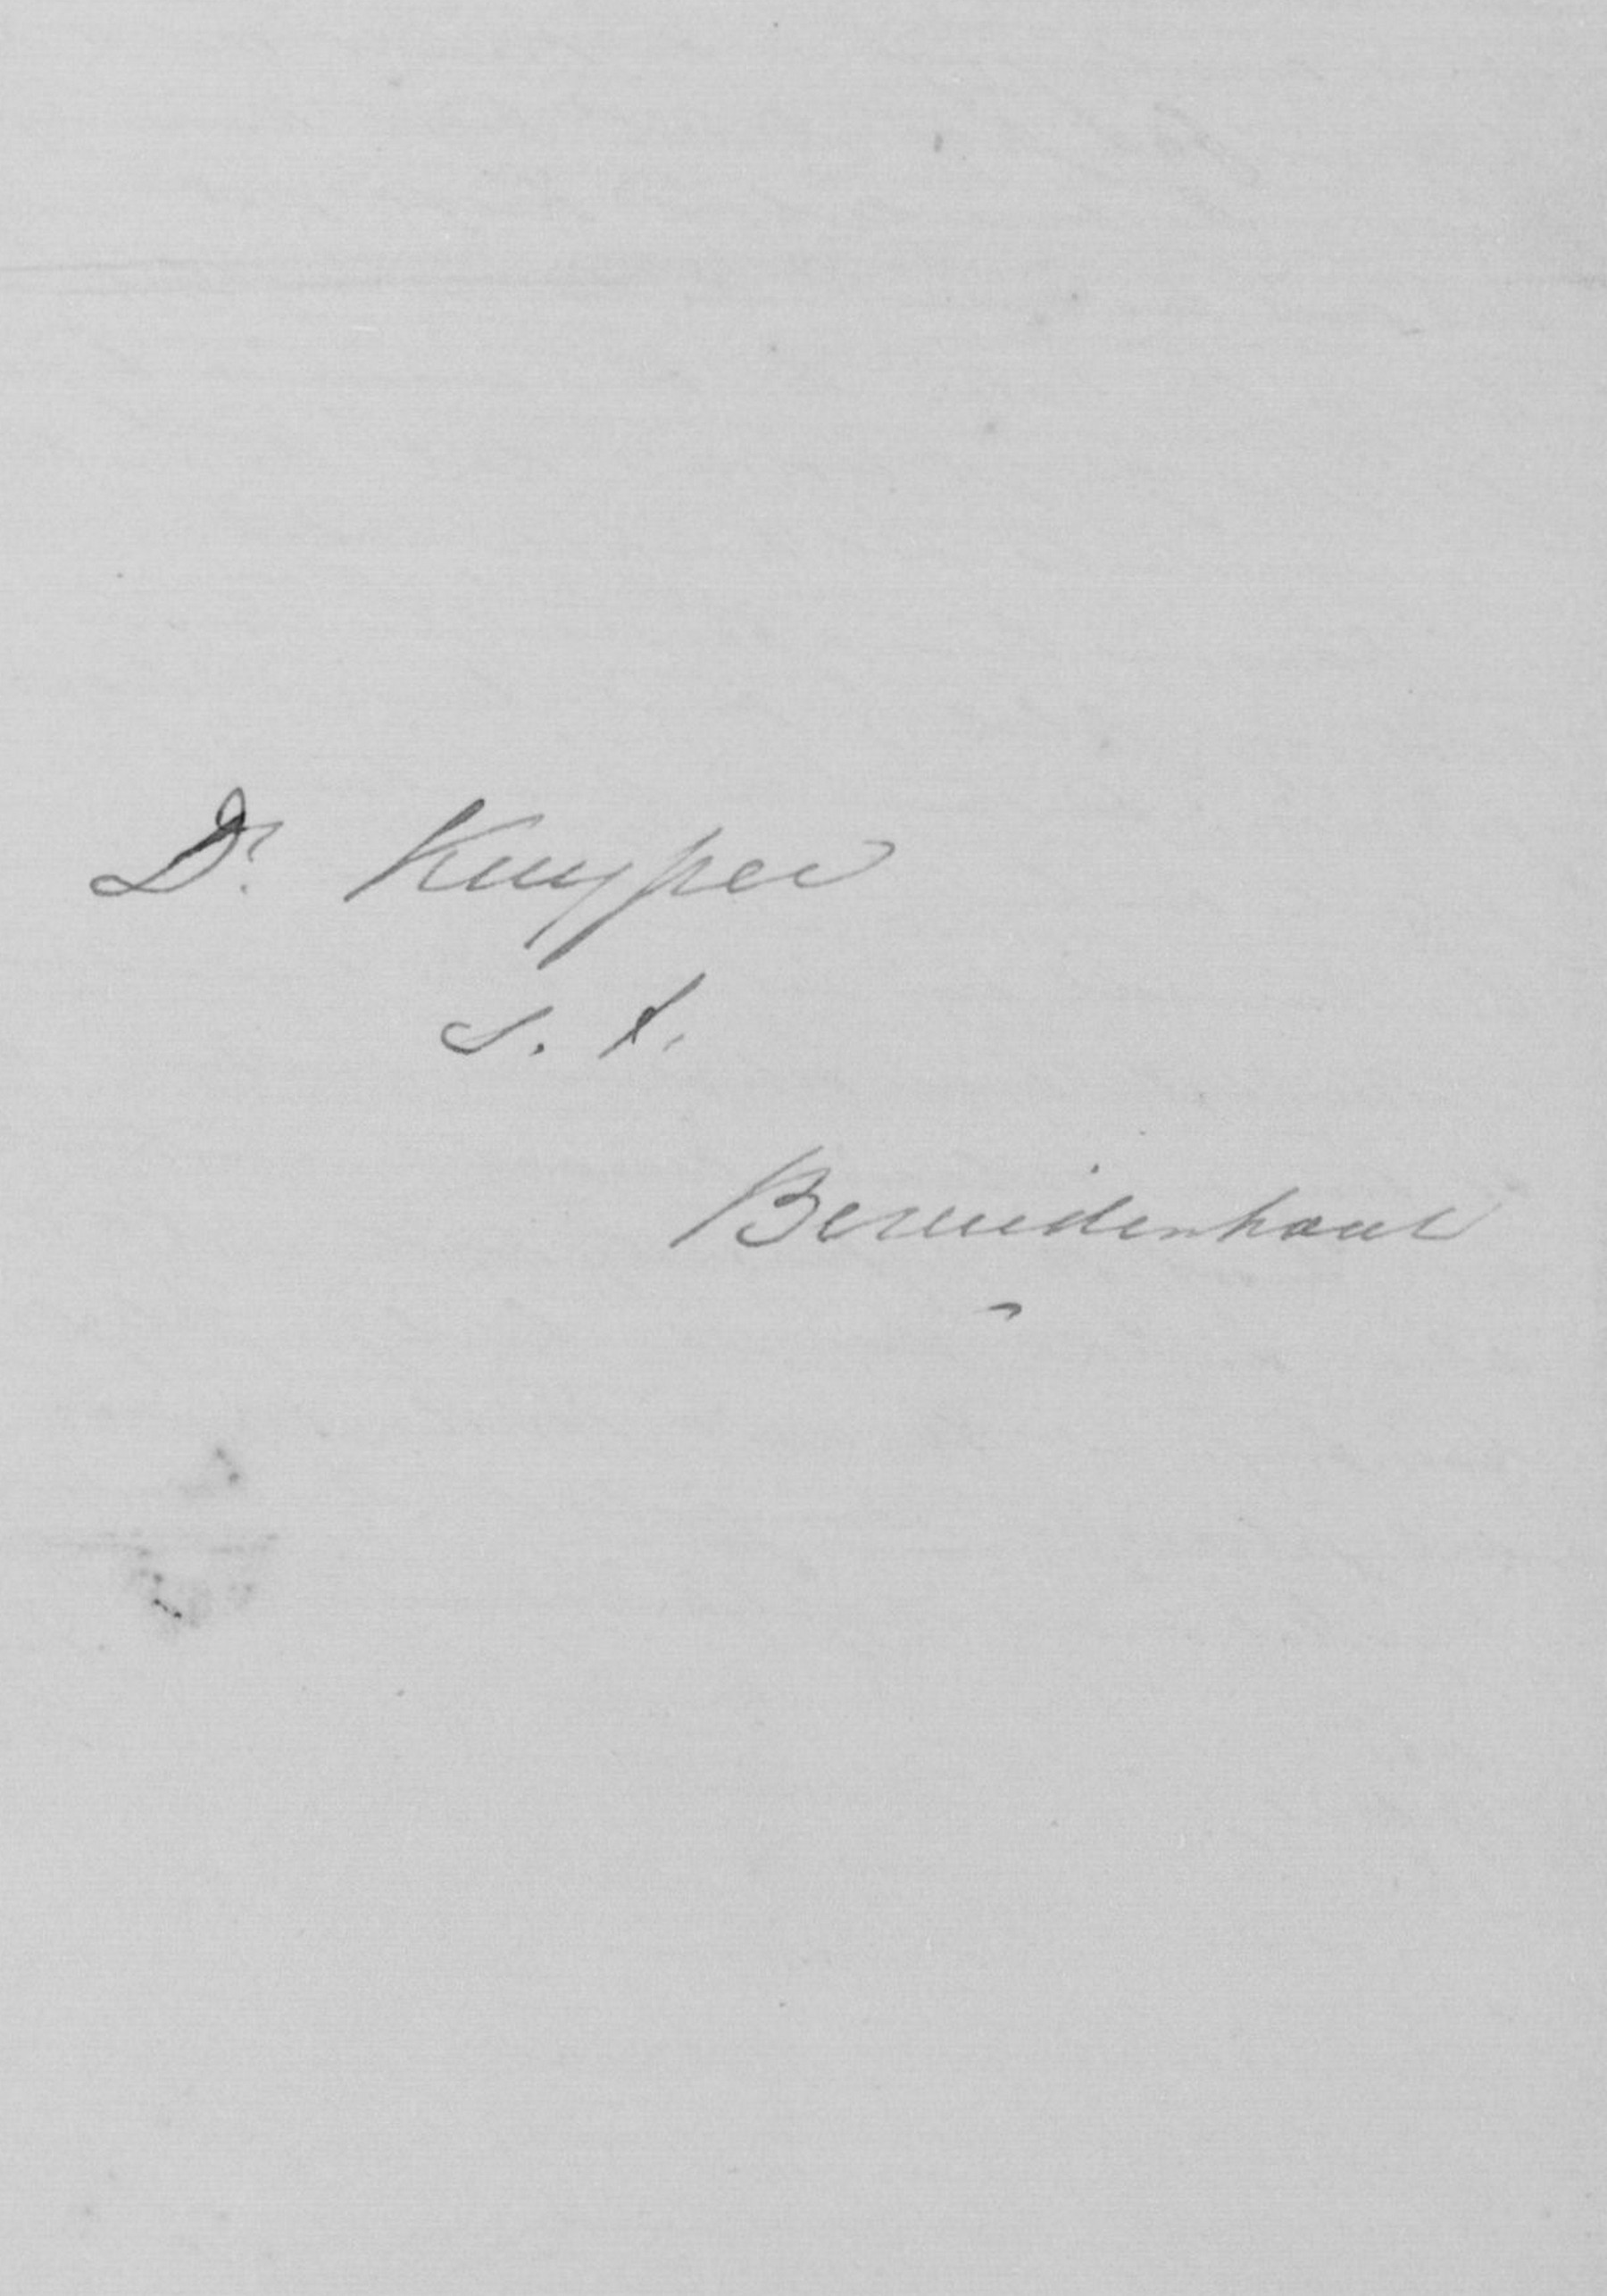 Dr. Kuyper
s. t.
Bezuidenhout